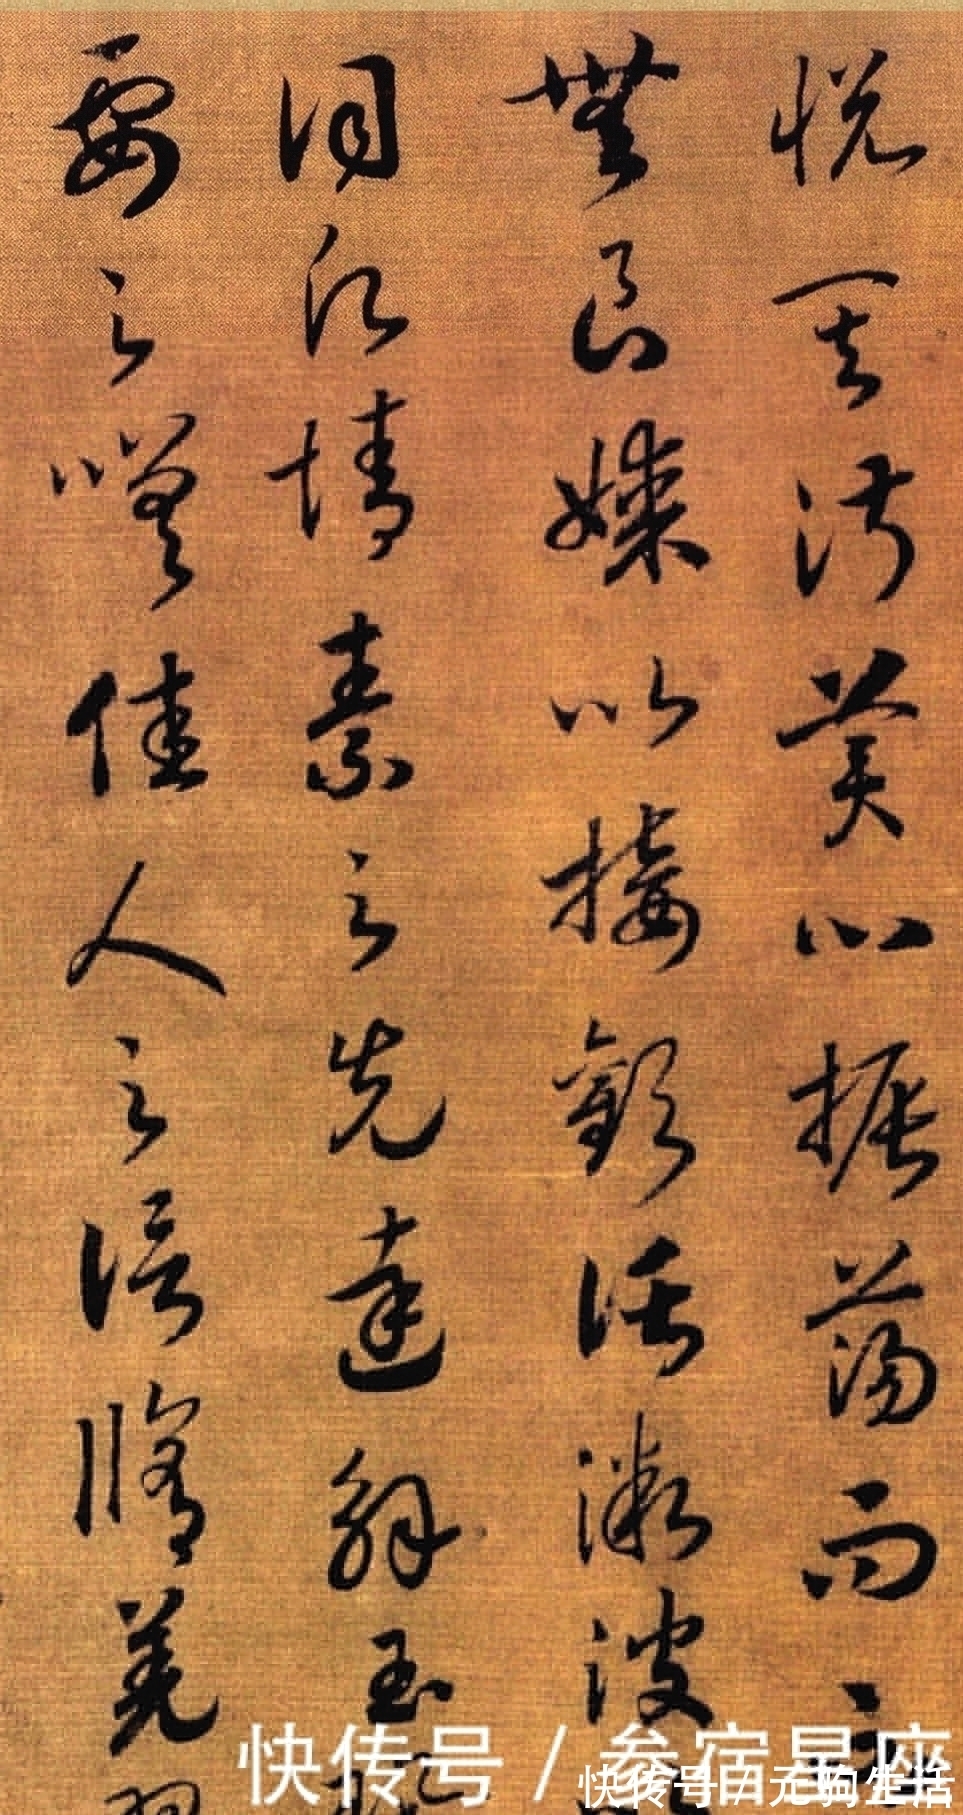 悦其淑美心振荡而不
無良媒以接歡託微波
詞願情素之先達解玉佩
要之嗟佳人之信脩羌習
快传号/参宿星座
快传号/元驹生活